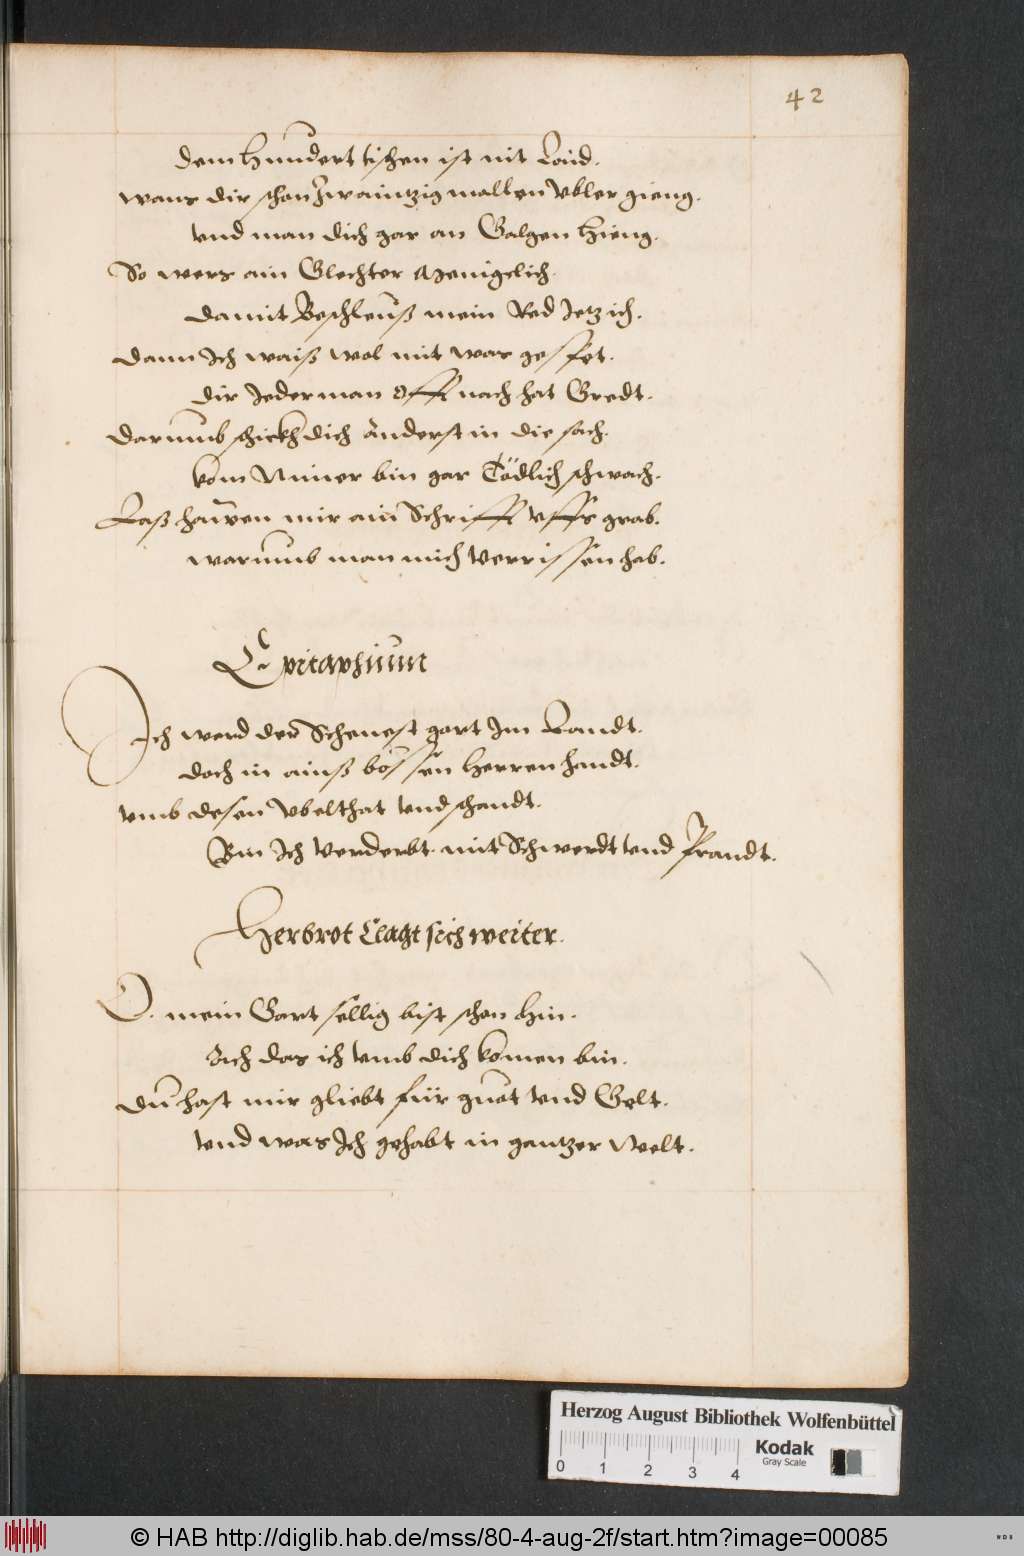 42
dem hundert tischen ist nit Laid.
wans dir schon Zwaintzig mallen Vbler gieng.
vnd man dich gar an Galgen hieng.
So wers ain Glechter Menigclich.
damit Beschleuß mein Red Jetz ich.
dann Ich waiß wol mit was gespet.
dir Jederman Offt nach hat Gredt.
darumb schickh dich Anderst in die sach.
kom Nimer bin gar Tödlich schwach.
Laß hauen mir ain Schrifft vffs grab.
warumb man mich Verrissen hab.
Epitaphium
Ich werd der Schenest gart Im Landt.
doch in ainß bössen herren handt.
vmb desen Vbelthat vnd schandt.
Bin Ich Verderbt mit Schwerdt vnd Prandt.
Herbrot Clagt sich weiter.
O. mein Gart sellig bist schon hin.
Ach das ich vmb dich komen bin.
du hast mir gliebt für guet vnd Gelt.
vnd was Ich gehabt in gantzer Welt.
Herzog August Bibliothek Wolfenbüttel
0 1 2 3 4
Kodak
Gray Scale
© HAB http://diglib.hab.de/mss/80-4-aug-2f/start.htm?image=00085